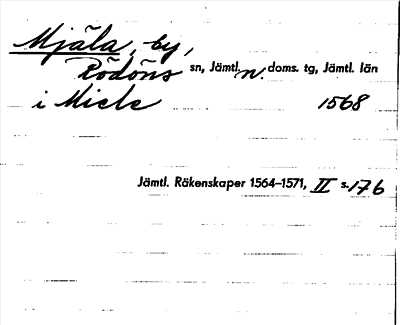 Mjäla, by,
Rödöns sn, Jämtl. n. doms. tg, Jämtl. län
i Miele 1568
Jämtl. Räkenskaper 1564–1571, II s. 176